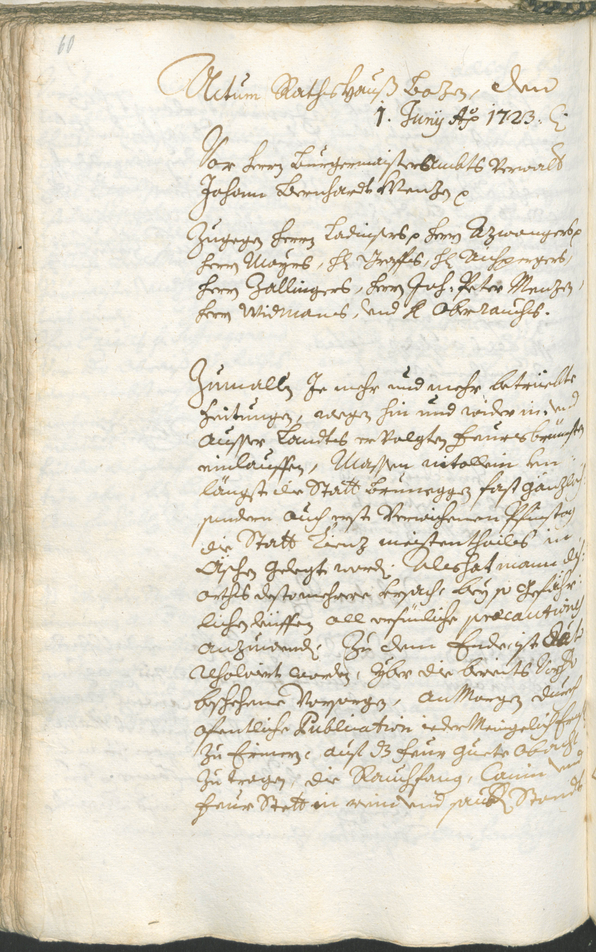 60
Actum Rathshauß Bozen, den
1. Juny Ao 1723.
Vor herrn Burgermaisters Ambts Verwalter
Johann Bernhardt Menzen
Zugegen herrn Ladinsers, herrn Azwangers,
herrn Mayrs, H. Graffs, H. Aichpergers,
herrn Zallingers, herrn Joh. Peter Menzen,
herrn Widmans, und H. Oberrauchs.
Zumallen Je mehr und mehr betriebte
Zeitungen, wegen hin und wider in, und
ausser Landtes ervolgten Feuersbrünsten
einlauffen, Massen nit allein hin
längst die Statt Bruneggen fast gänzlich
sondern auch erst verwichenen Pfinstag
die Statt Lienz maistenthailes in
Aschen gelegt worden: Alß hat mann diß
orths destomehrere ursach, bey so gefähr-
lichen leüffen all ersinliche praecautiones
anzuwenden: Zu dem Ende ist
resolviert worden, yber die bereits
beschehene Vorsorgen, an Morgen durch
ofentliche Publication iedermenigelich
zu erinern, auf das Feur guete obacht
zu tragen, die Rauchfang, Camin und
Feur Stett in rein und saubern Standt